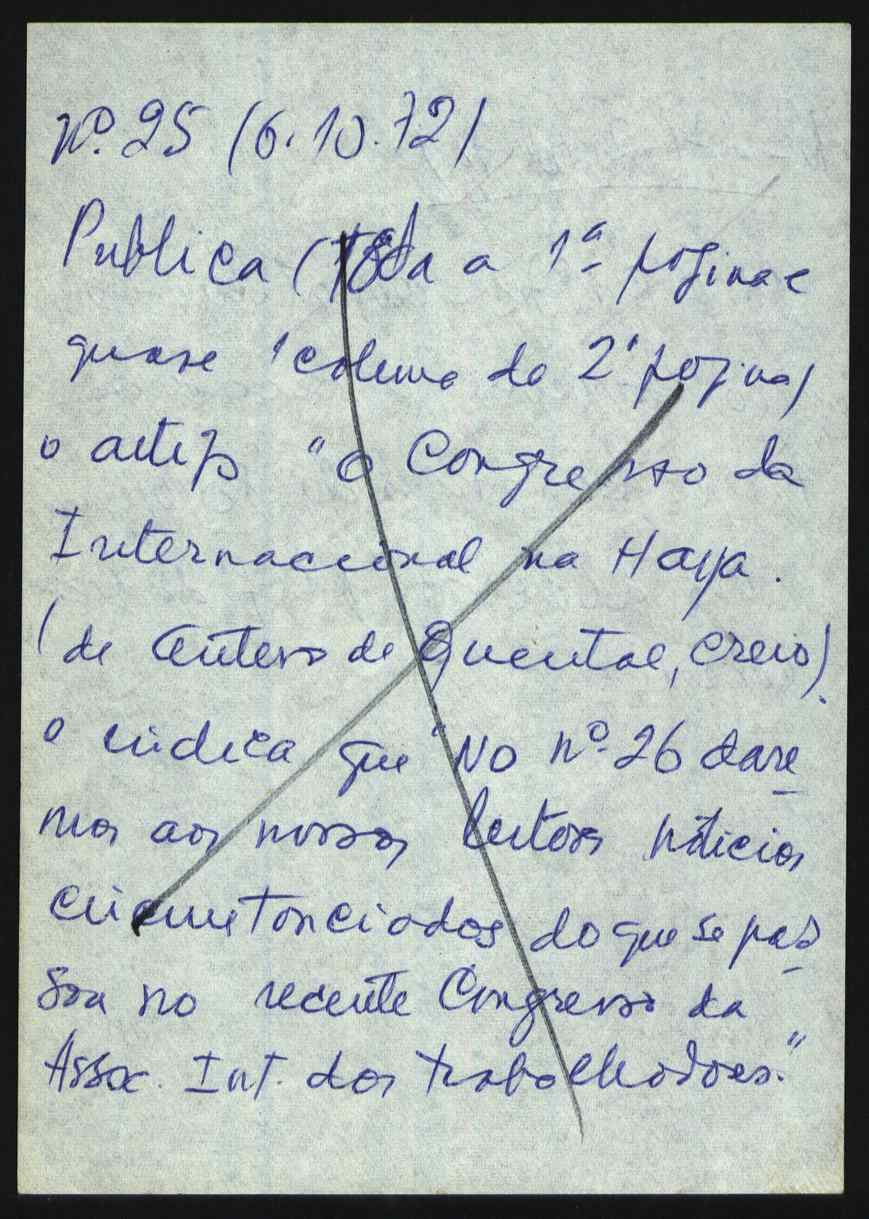 nº. 25 (6.10.72)
Publica (toda a 1ª página e
quase 1 coluna da 2ª página)
o artigo "O Congresso da
Internacional na Haya.
(de Antero de Quental, creio).
e indica que "No nº 26 dare
mos aos nossos leitores noticias
circumstanciadas do que se pas
sou no recente Congresso da
Assoc. Int. dos trabalhadores."